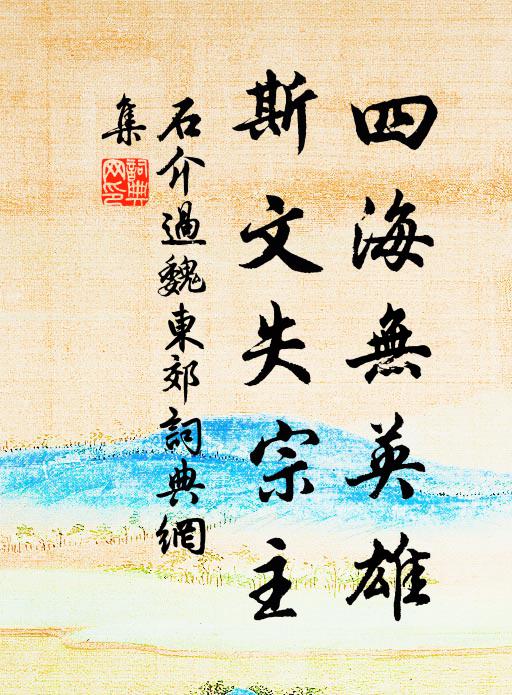 四海無英雄
斯文失宗主
石介過魏東郊詞典網
集
詞典網印